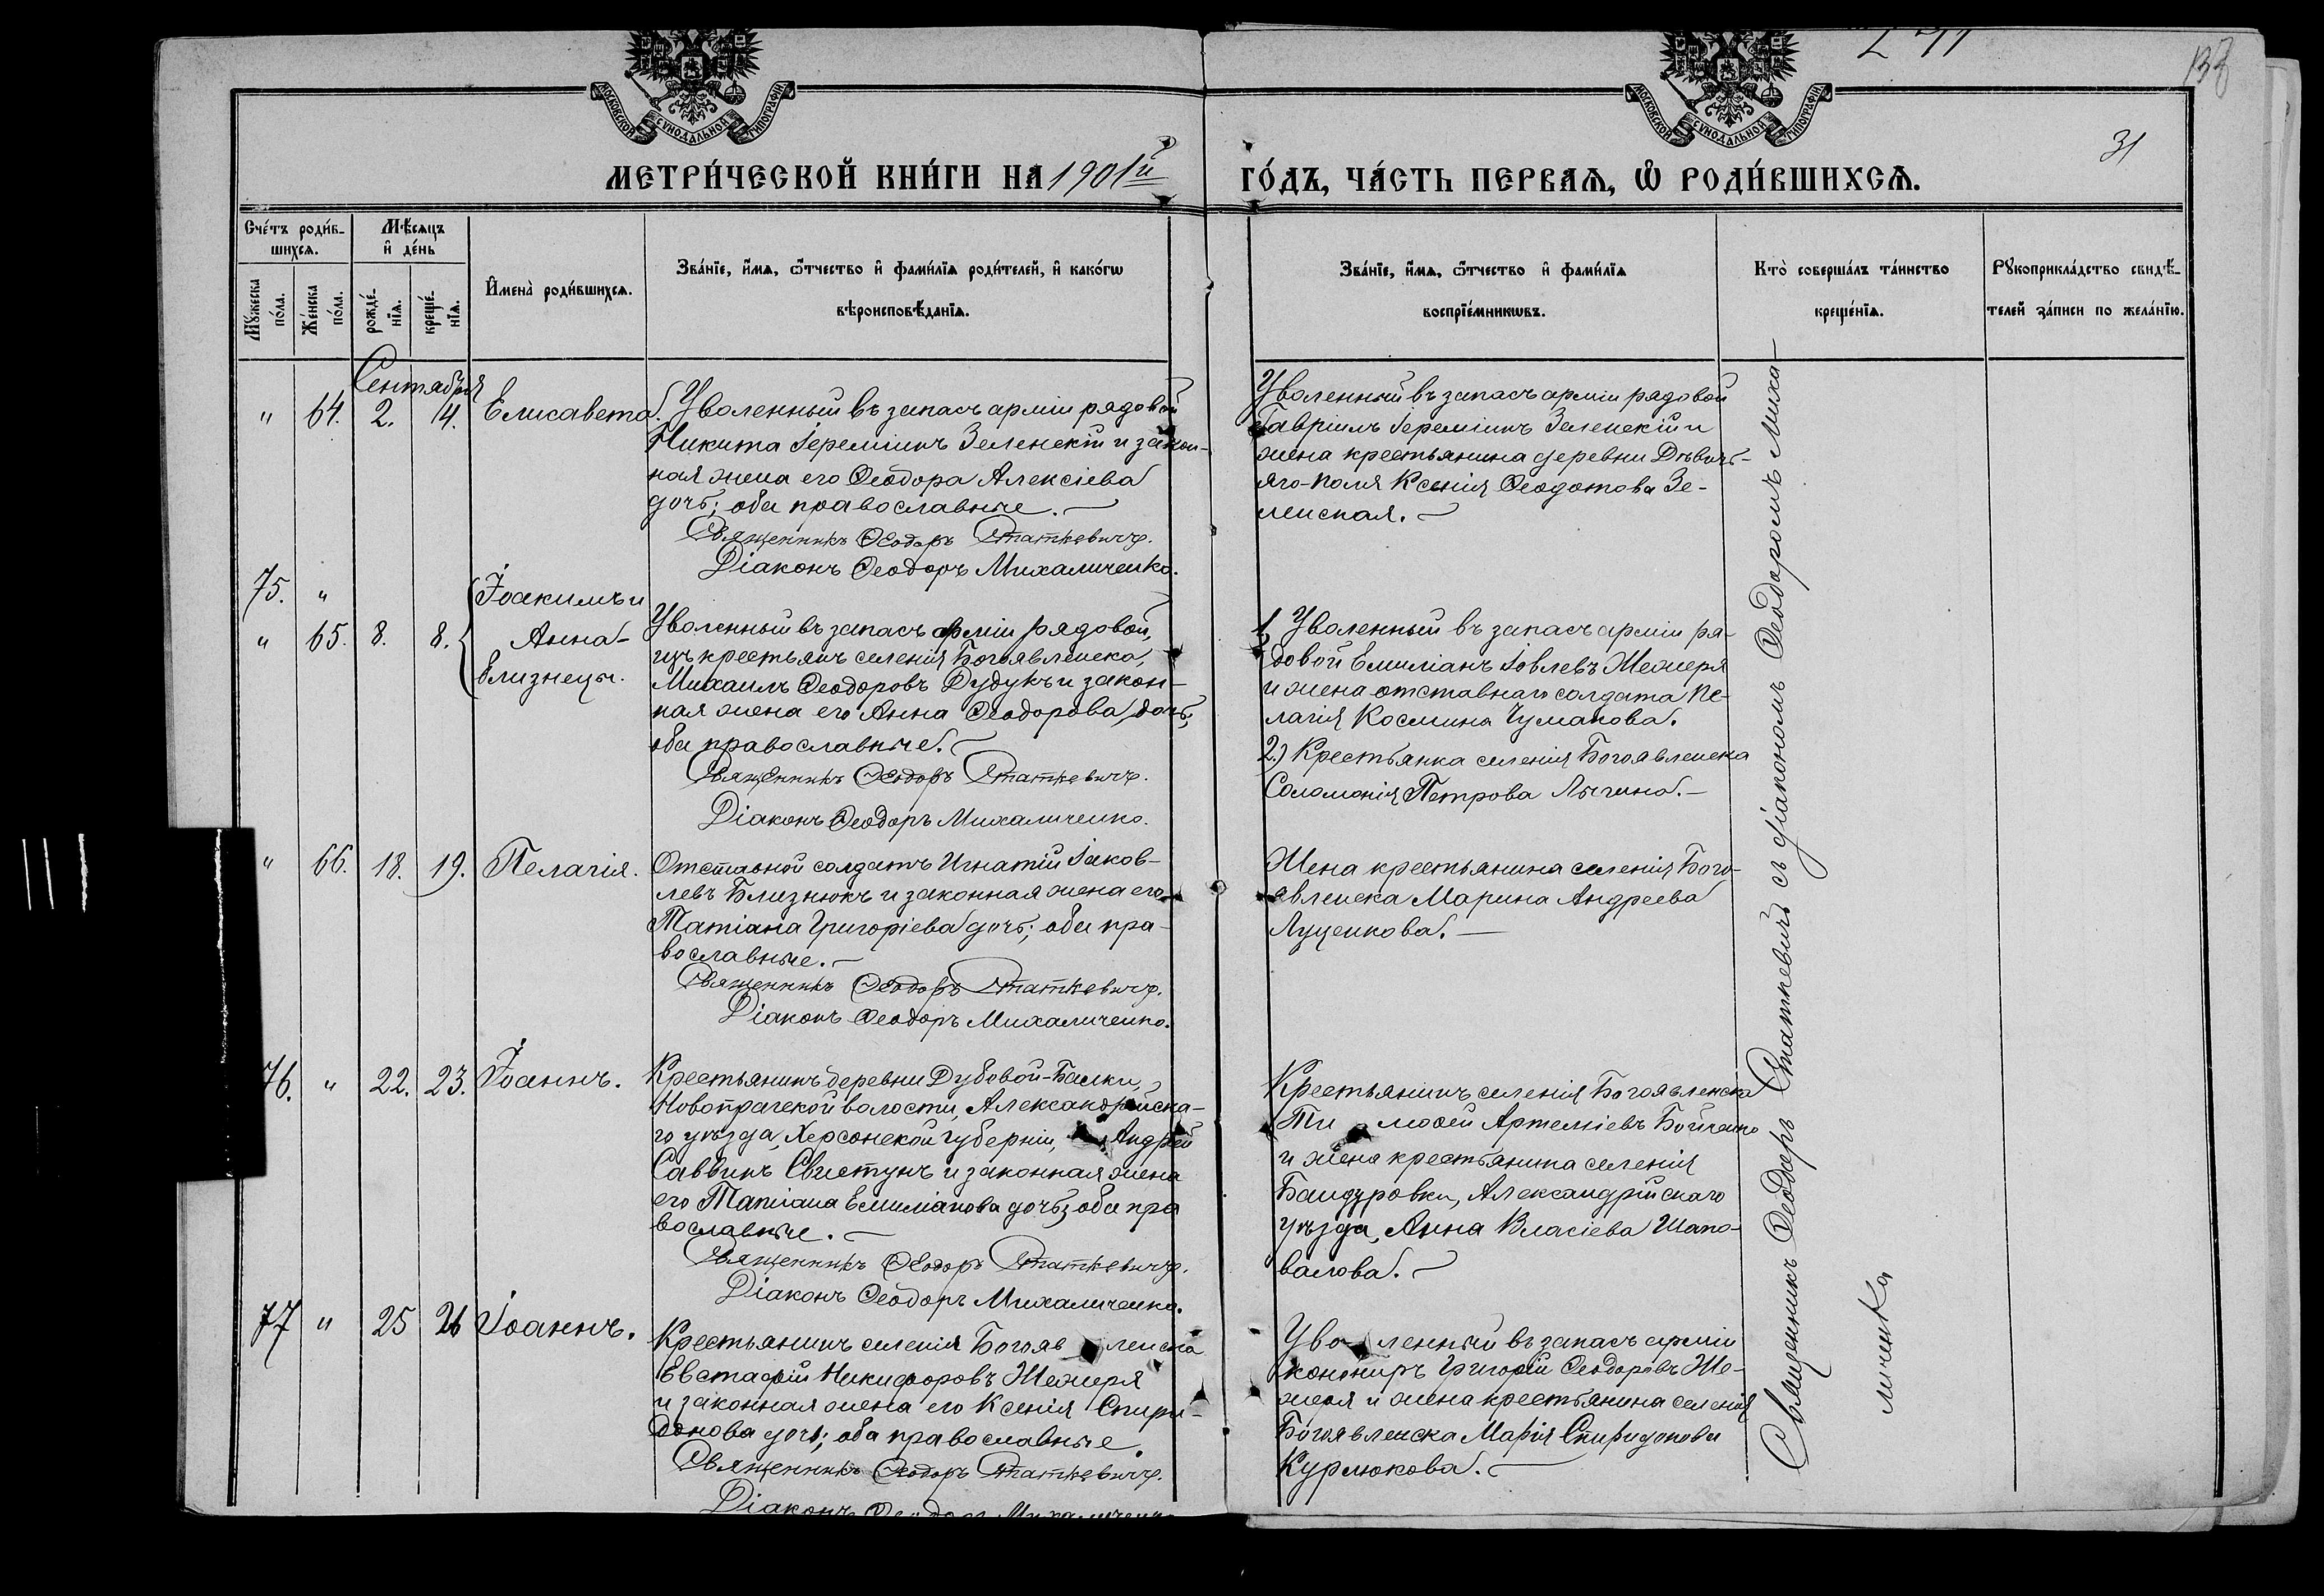 МОСКОВСКОЙ СѴНОДАЛЬНОЙ ТИПОГРАФІИ
МОСКОВСКОЙ СѴНОДАЛЬНОЙ ТИПОГРАФІИ
138
31
МЕТРИ́ЧЕСКОЙ КНИ́ГИ НА 1901й
ГО́ДЪ, ЧА́СТЬ ПЕРВАѦ, Ѡ РОДИ́ВШИХСѦ.
Сче́тъ роди́в-
шихсѧ.
Мѣсѧцъ
и҆ де́нь
Мꙋ́жеска
по́ла.
Же́нска
по́ла.
рожде́-
нїѧ.
креще́-
нїѧ.
И҆мена̀ роди́вшихсѧ.
Зва́нїе, и҆́мѧ, ѻ҆́тчество и҆ фами́лїѧ роди́телей, и҆ како́гѡ
вѣроисповѣ́данїѧ.
Зва́нїе, и҆́мѧ, ѻ҆́тчество и҆ фами́лїѧ
воспрїе́мникѡвъ.
Кто̀ соверша́лъ та́инство
креще́нїѧ.
Рꙋкоприкла́дство свидѣ́-
телей за́писи по жела́нїю.
Сентября
" 64. 2. 4. Елисавета.
Уволенный въ запасъ арміи рядовой
Никита Іереміинъ Зеленскій и закон-
ная жена его Ѳеодора Алексіева
дочь; оба православные.
Священникъ Ѳеодоръ Статкевичъ.
Діаконъ Ѳеодоръ Михаличенко.
Уволенный въ запасъ арміи рядовой
Гавріилъ Іереміинъ Зеленскій и
жена крестьянина деревни Дѣвичь-
яго-Поля Ксенія Ѳеодотова Зе-
ленская.
75. " Іоакимъ и
" 65. 8. 8. Анна-
близнецы.
Уволенный въ запасъ арміи рядовой,
изъ крестьянъ селенія Богоявленска,
Михаилъ Ѳеодоровъ Дудукъ и закон-
ная жена его Анна Ѳеодорова дочь;
оба православные.
Священникъ Ѳеодоръ Статкевичъ.
Діаконъ Ѳеодоръ Михаличенко.
1, Уволенный въ запасъ арміи ря-
довой Емиліанъ Іовлевъ Жежеря
и жена отставнаго солдата Пе-
лагія Космина Чумакова.
2.) Крестьянка селенія Богоявленска
Соломонія Петрова Лычина.
" 66. 18. 19. Пелагія.
Отставной солдатъ Игнатій Іаков-
левъ Близнюкъ и законная жена его
Татіана Григоріева дочь; оба пра-
вославные.
Священникъ Ѳеодоръ Статкевичъ.
Діаконъ Ѳеодоръ Михаличенко.
Жена крестьянина селенія Бого-
явленска Марина Андреева
Луценкова.
76. " 22. 23. Іоаннъ.
Крестьянинъ деревни Дубовой-Балки,
Новопрагской волости, Александрійска-
го уѣзда, Херсонской губерніи, Андрей
Саввинъ Свистунъ и законная жена
его Татіана Емиліанова дочь; оба пра
вославные.
Священникъ Ѳеодоръ Статкевичъ.
Діаконъ Ѳеодоръ Михаличенко.
Крестьянинъ селенія Богоявленска
Тимоѳей Артеміевъ Бойченко
и жена крестьянина селенія
Бандуровки, Александрійскаго
уѣзда, Анна Власіева Шапо-
валова.
77 " 25 26 Іоаннъ.
Крестьянинъ селенія Богоявленска
Евстафій Никифоровъ Жежеря
и законная жена его Ксенія Спири-
донова дочь; оба православные.
Священникъ Ѳеодоръ Статкевичъ.
Діаконъ Ѳеодоръ Михаличенко
Уволенный въ запасъ арміи
канониръ Григорій Ѳеодоровъ Же-
жеря и жена крестьянина селенія
Богоявленска Марія Спиридонова
Курлюкова.
Священникъ Ѳеодоръ Статкевичъ съ діакономъ Ѳеодоромъ Миха-
личенко